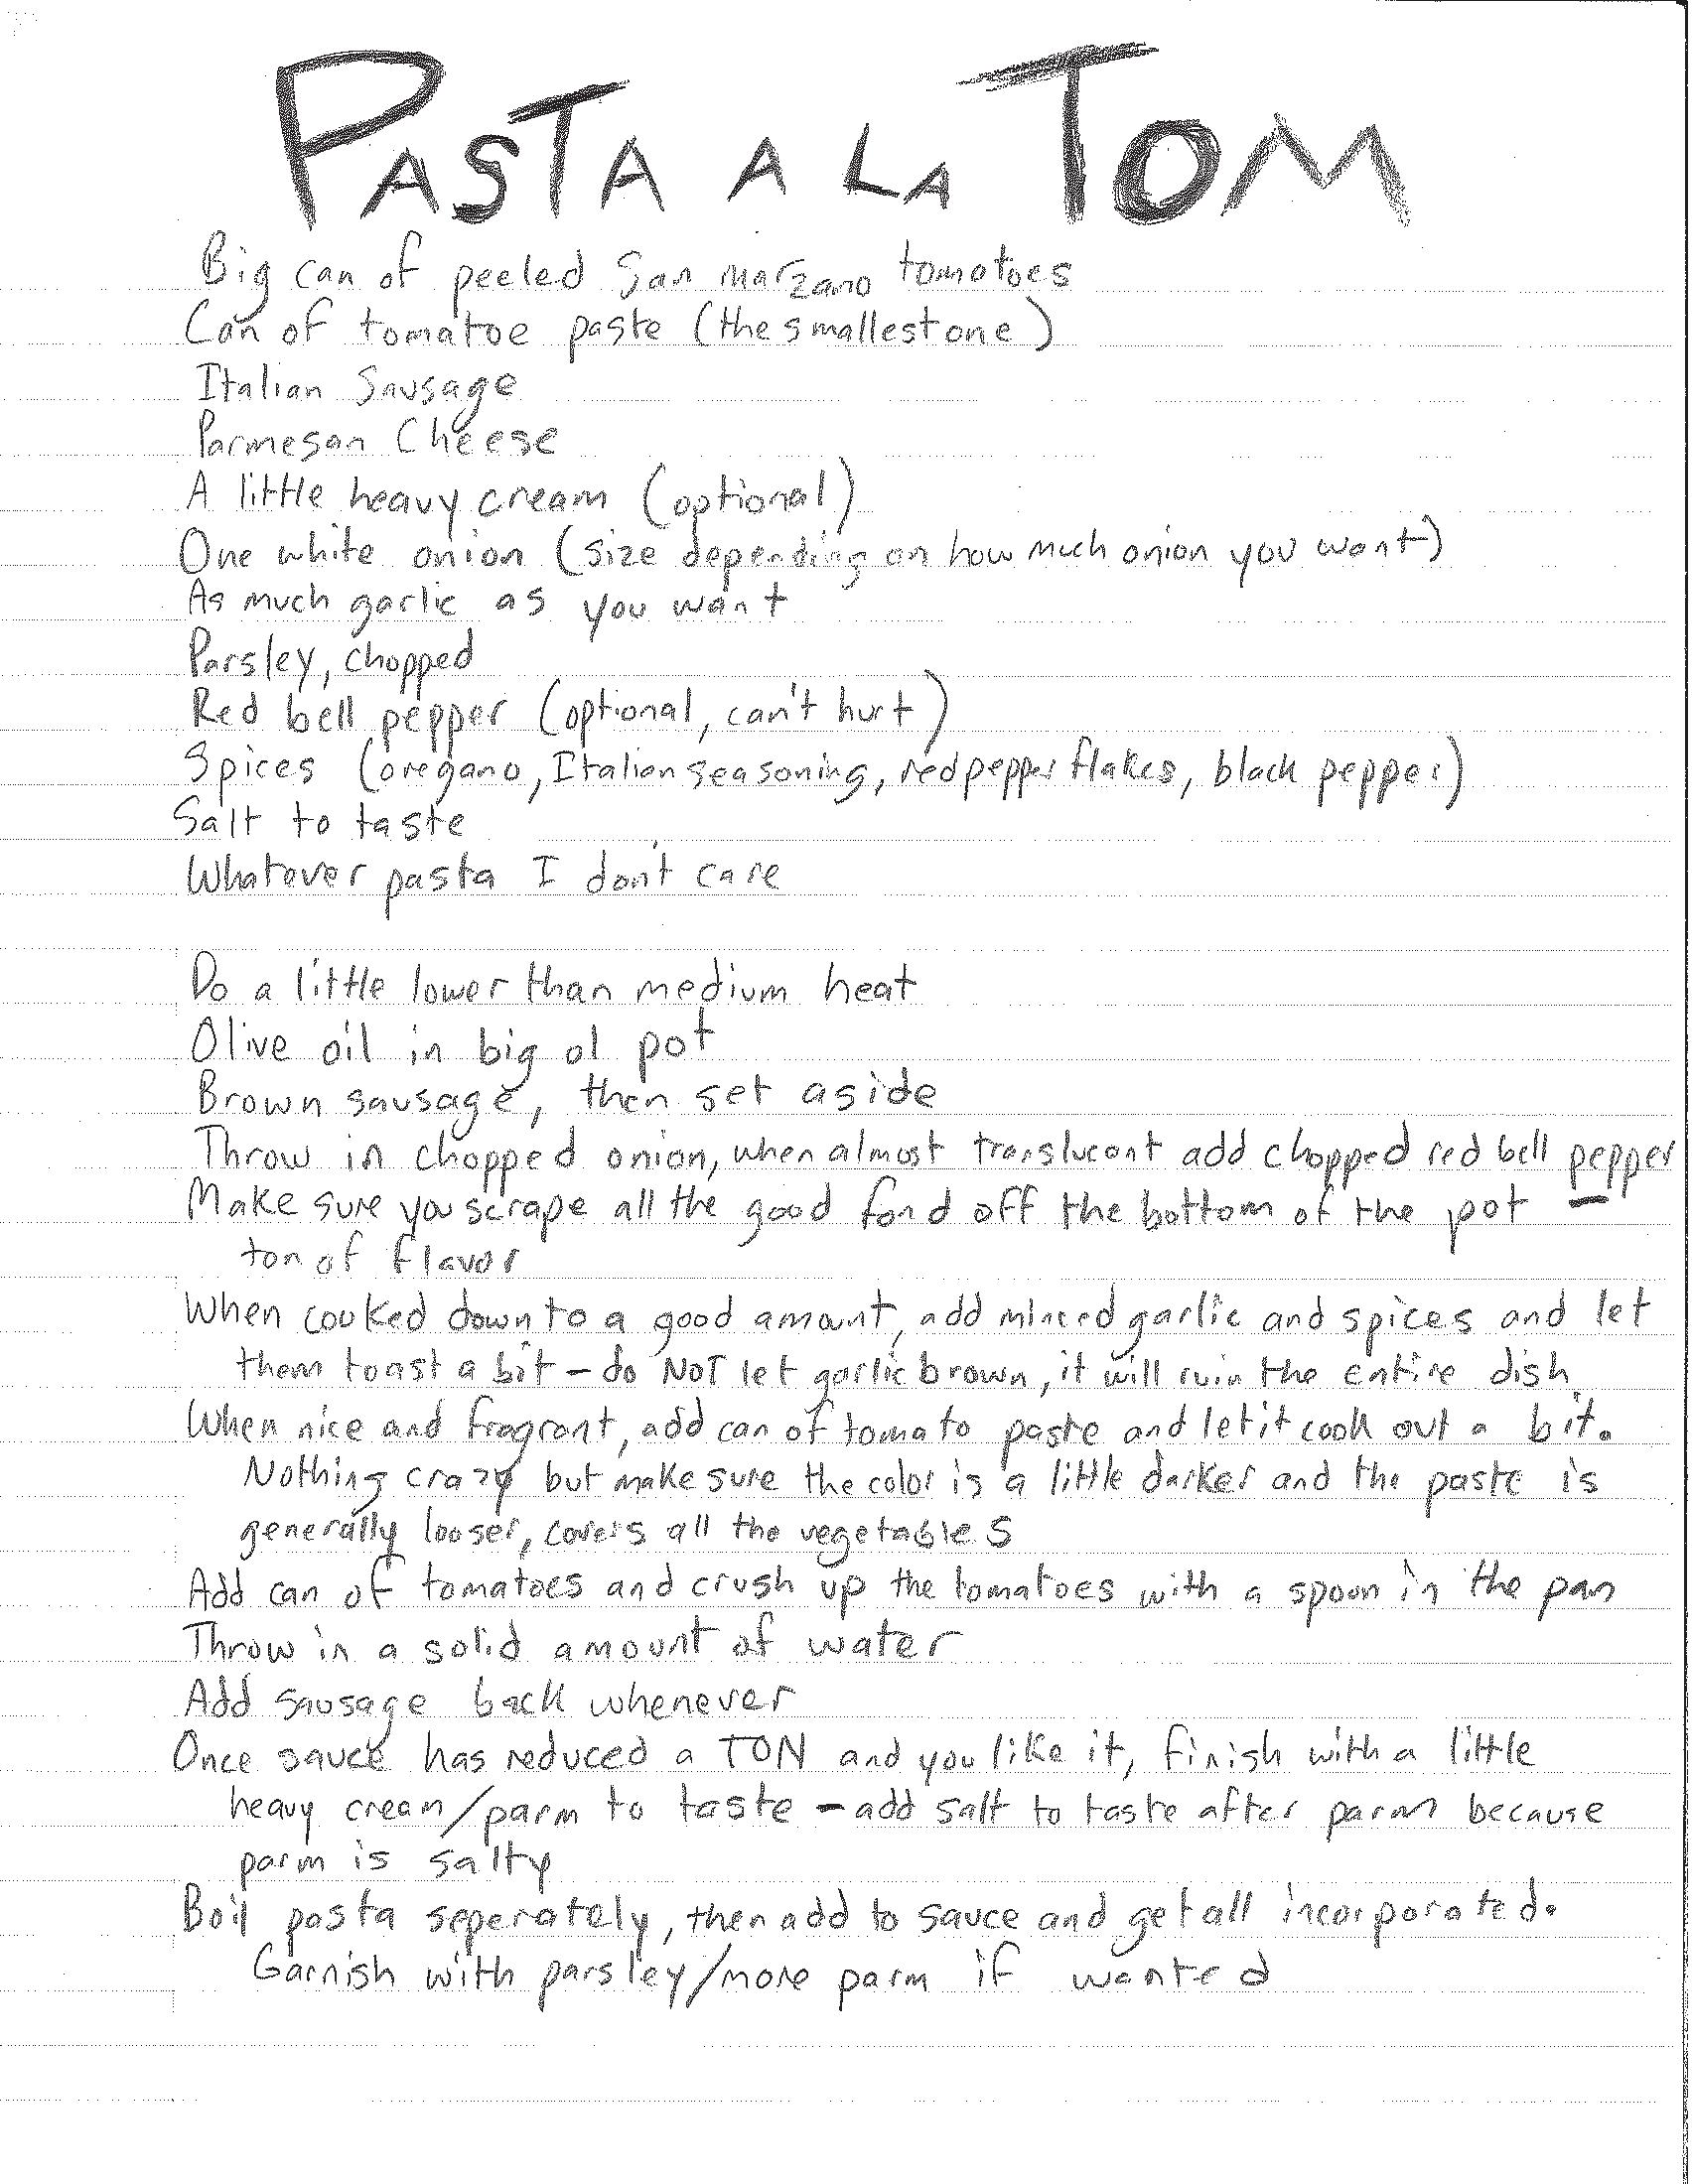 PASTA A LA TOM
Big can of peeled San Marzano tomatoes
Can of tomatoe paste (the smallest one)
Italian Sausage
Parmesan Cheese
A little heavy cream (optional)
One white onion (size depending on how much onion you want)
As much garlic as you want
Parsley, chopped
Red bell pepper (optional, can't hurt)
Spices (oregano, Italian seasoning, red pepper flakes, black pepper)
Salt to taste
Whatever pasta I don't care
Do a little lower than medium heat
Olive oil in big ol pot
Brown sausage, then set aside
Throw in chopped onion, when almost translucent add chopped red bell pepper
Make sure you scrape all the good fond off the bottom of the pot -
ton of flavor
When cooked down to a good amount, add minced garlic and spices and let
them toast a bit - do NOT let garlic brown, it will ruin the entire dish.
When nice and fragrant, add can of tomato paste and let it cook out a bit.
Nothing crazy but make sure the color is a little darker and the paste is
generally looser, covers all the vegetables
Add can of tomatoes and crush up the tomatoes with a spoon in the pan
Throw in a solid amount of water
Add sausage back whenever
Once sauce has reduced a TON and you like it, finish with a little
heavy cream/parm to taste - add salt to taste after parm because
parm is salty
Boil pasta seperately, then add to sauce and get all incorporated.
Garnish with parsley/more parm if wanted